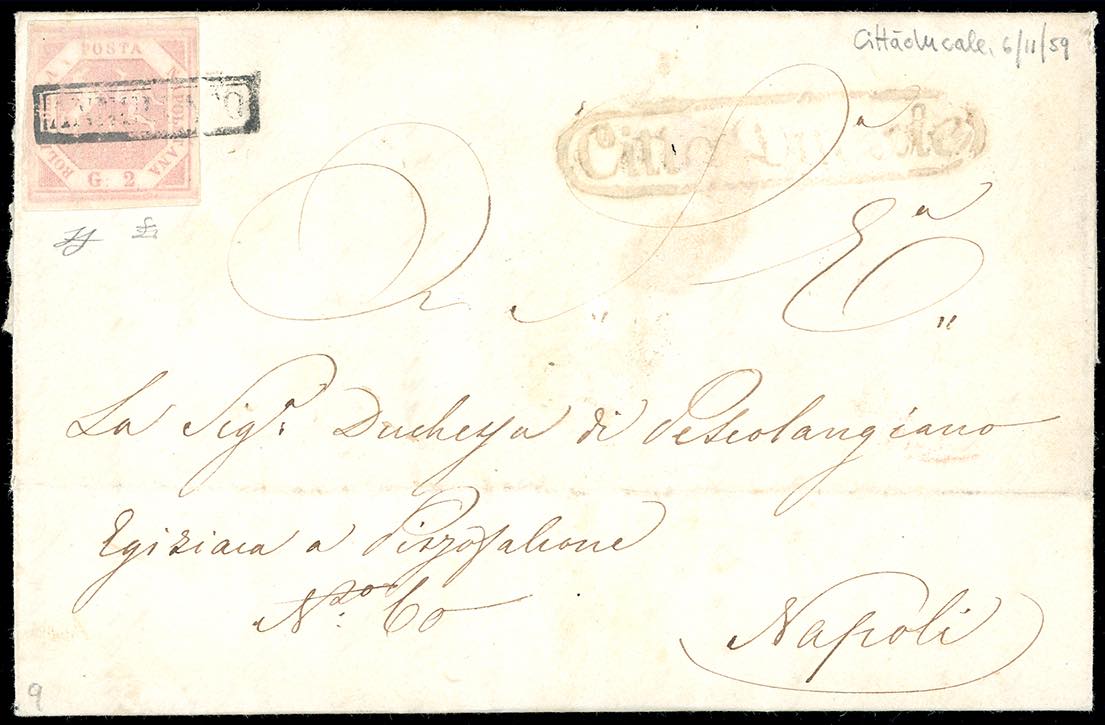 Cittàducale, 6/11/59
POSTA
NAPOLETANA
BOLLO
G. 2
ANNULLATO
Citta Ducale
A
S. E.
La Sig.ª Duchessa di Pescolangiano
Egiziaca a Pizzofalcone
N.ro 60
Napoli
9